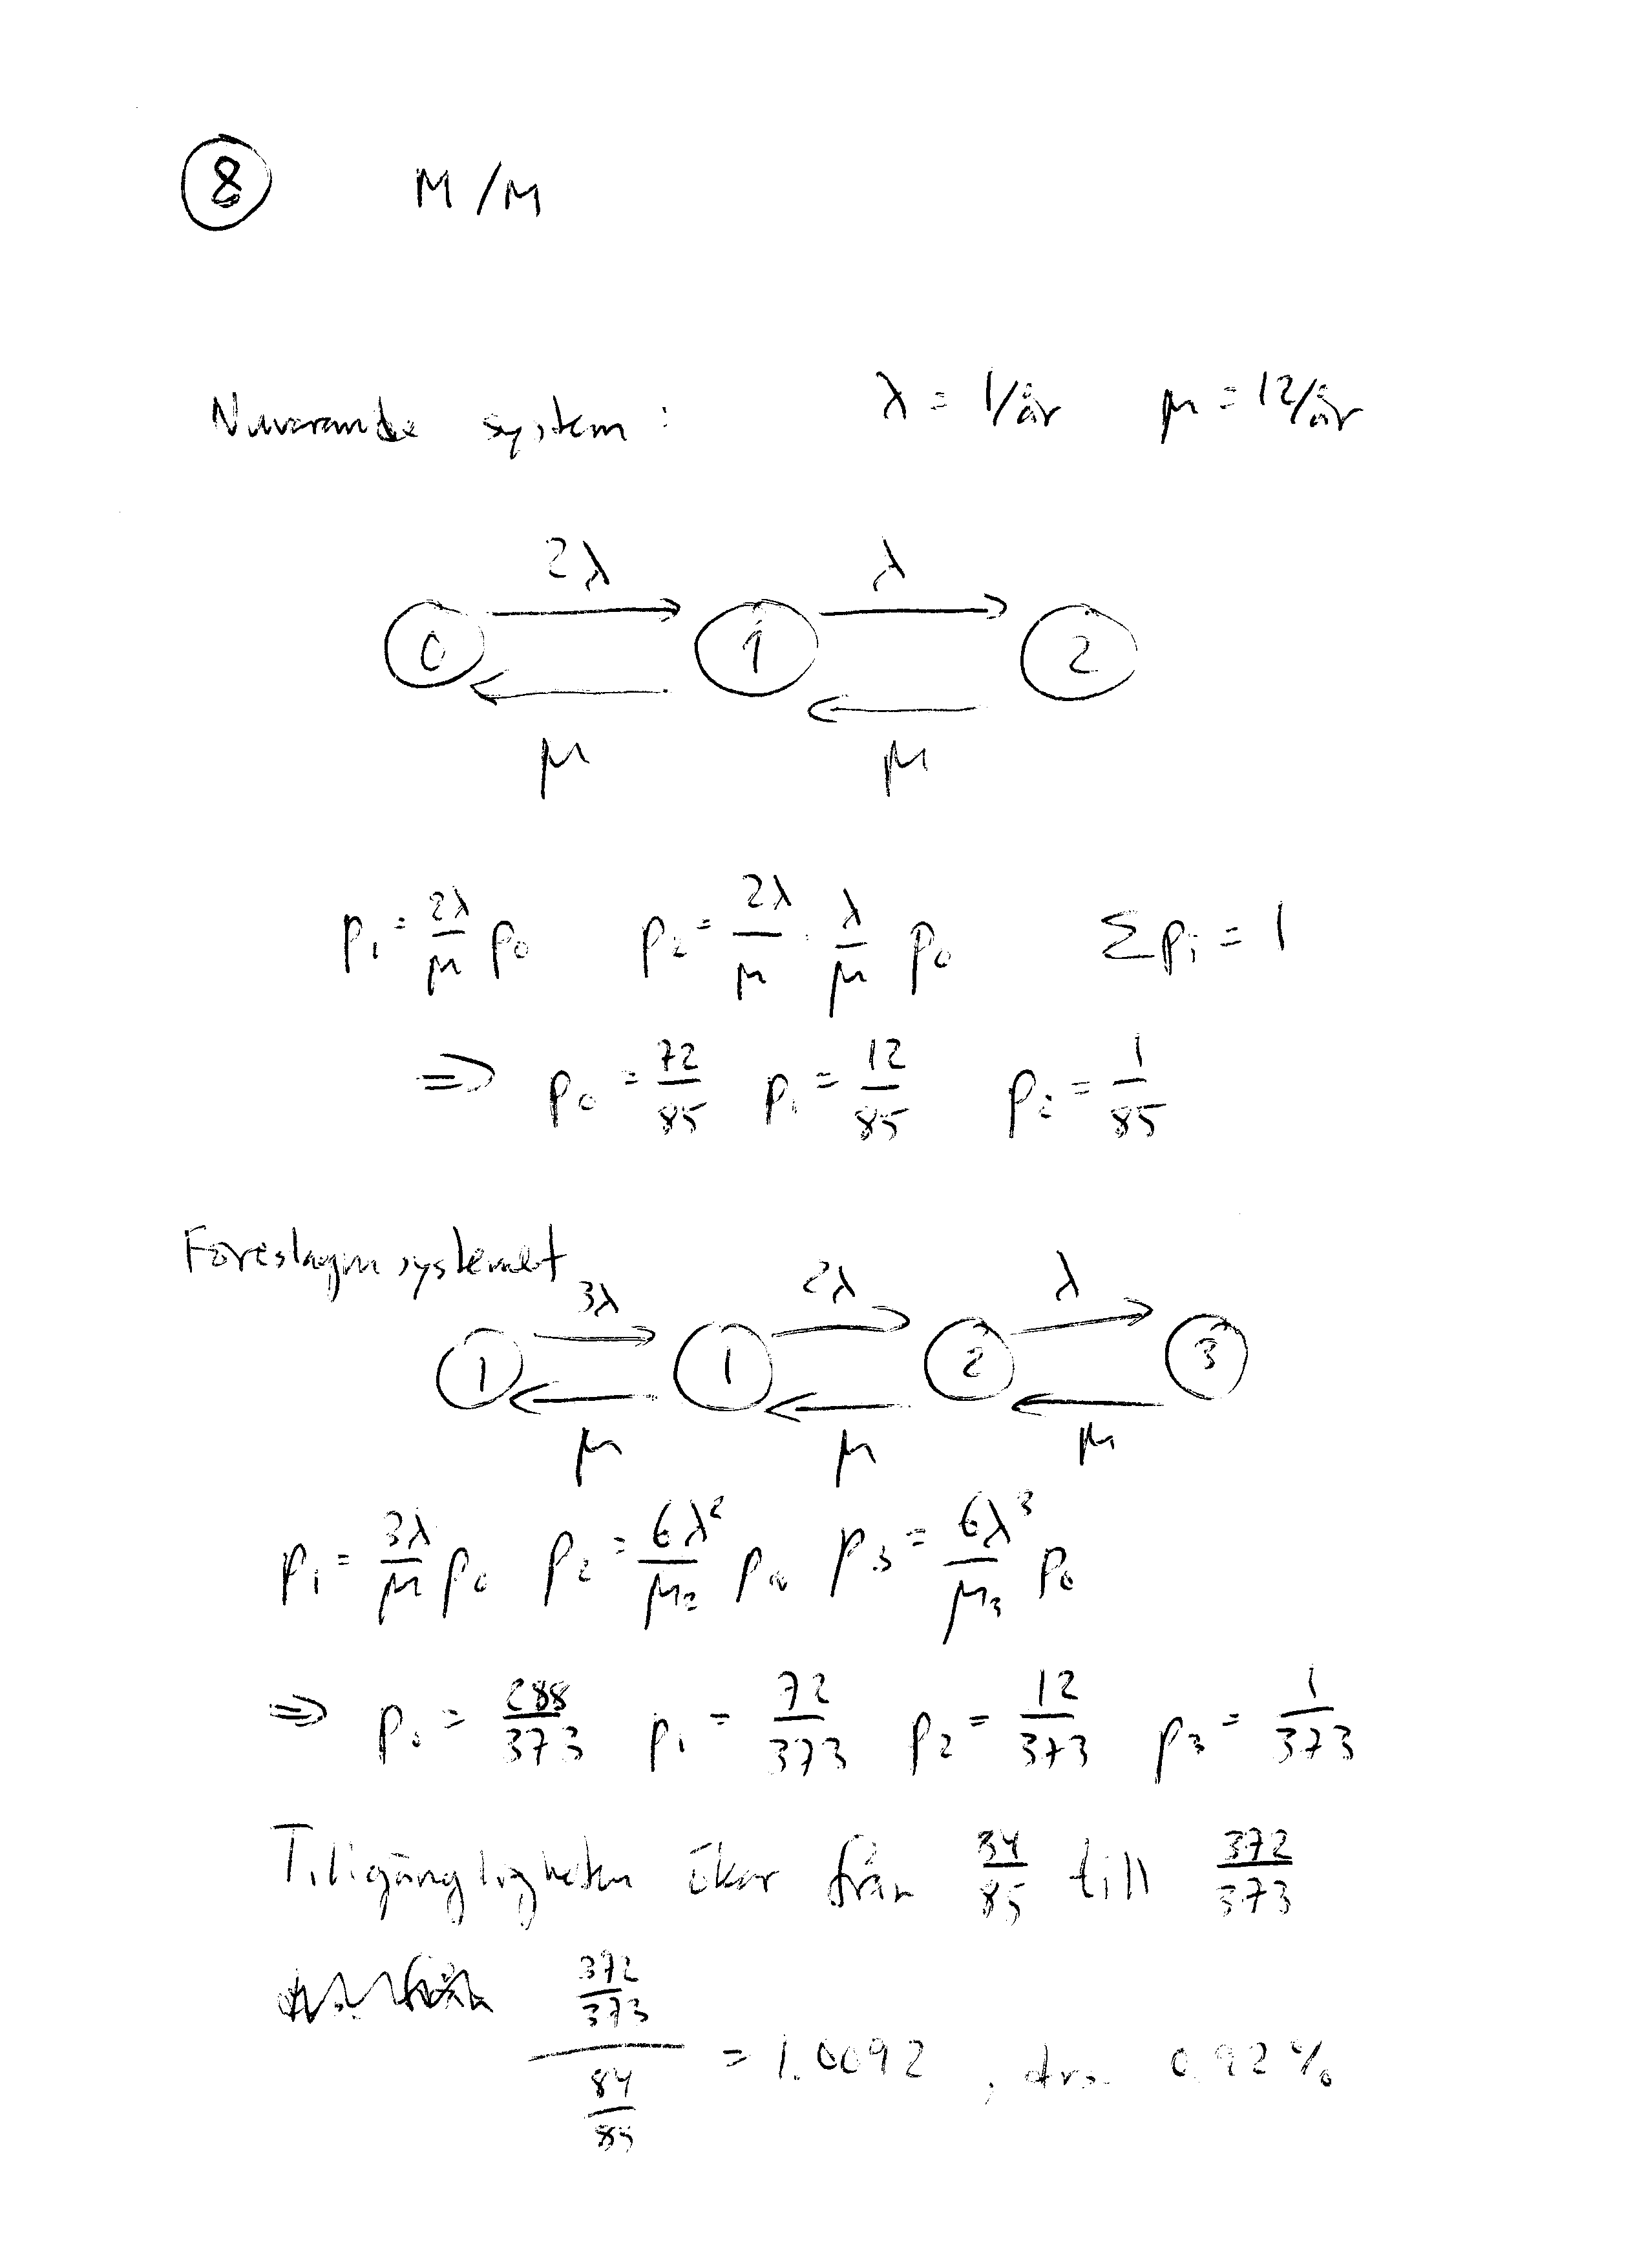 8 M/M
Nuvarande system: λ = 1/år μ = 12/år
2λ λ
0 1 2
μ μ
p₁ = 2λ/μ p₀ p₂ = 2λ/μ · λ/μ p₀ Σpᵢ = 1
⇒ p₀ = 72/85 p₁ = 12/85 p₂ = 1/85
Föreslagna systemet
3λ 2λ λ
1 1 2 3
μ μ μ
p₁ = 3λ/μ p₀ p₂ = 6λ²/μ₂ p₀ p₃ = 6λ³/μ₃ p₀
⇒ p₀ = 288/373 p₁ = 72/373 p₂ = 12/373 p₃ = 1/373
Tillgängligheten ökar från 84/85 till 372/373
(372/373)/(84/85) = 1.0092, dvs. 0.92%